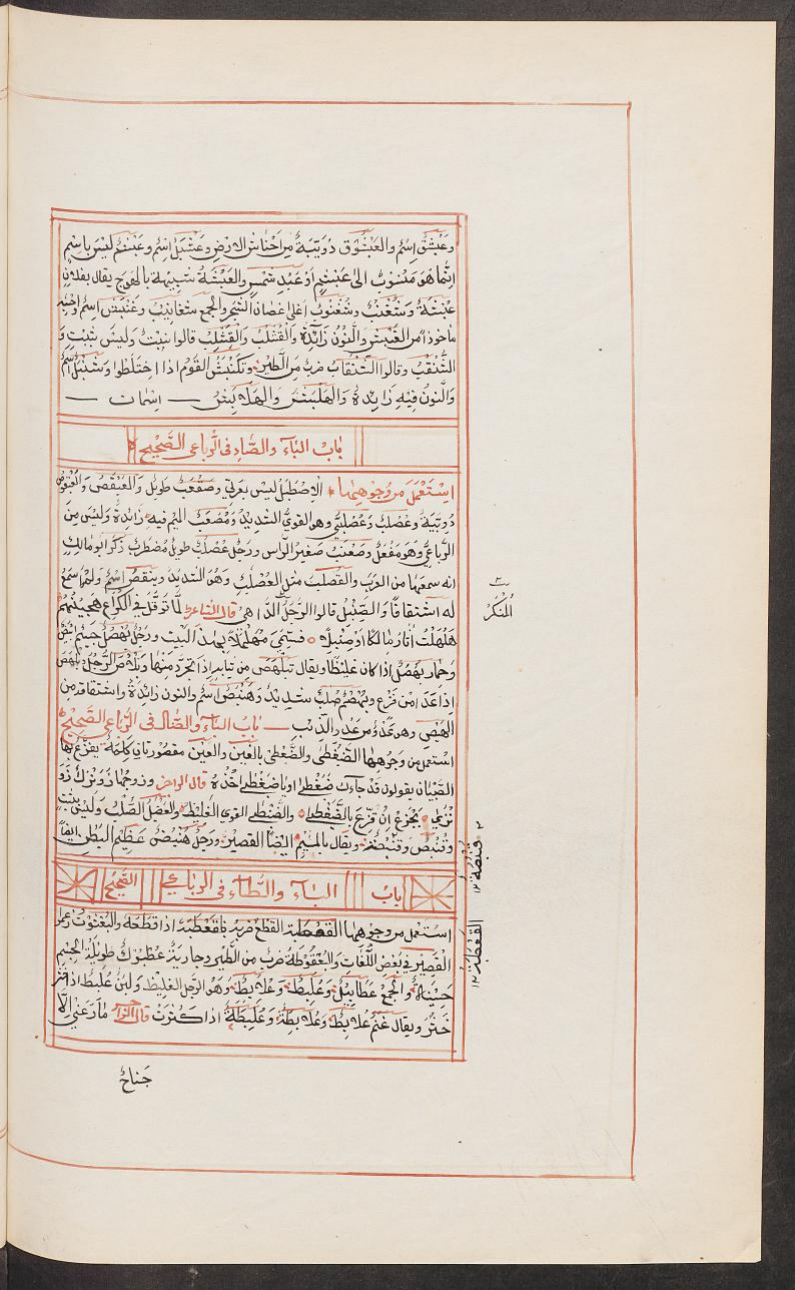 وعبشق اسم والعبشوق دويبة من احناش الارض وعشبل اسم وعبشم ليس باسم
انما هو منسوب الى عبشم او عبد شمس والعبشة شبيهة بالهوج يقال بفلان
عبشة وشغنب وشغنوب اعلى اغصان الشجر والجمع شغانيب وغنبش اسم
ماخوذ من الغبش والنون زائدة والقشلب والقشلب قالوا نبت وليس بثبت و
الشنقب وقالوا الشنقاب ضرب من الطير وتكنبش القوم اذا اختلطوا وشنبل اسم
والنون فيه زائدة والهلبش والهلابش — اسمان —
باب الباء والصاد فى الرباعى الصحيح
استعمل من وجوههما الاصطبل ليس بعربي وصقعب طويل والعبقص والعبقوص
دويبة وعصلب وعصلبي وهو القوي الشديد ومصعب الميم فيه زائدة وليس من
الرباعي وهو مفعل وصعنب صغير الراس ورجل عصلب طويل مضطرب ذكر ابو مالك
انه سمعها من العرب والقصلب مثل العصلب وهو الشديد وبنقص اسم ولم اسمع
له اشتقاقا والصئبل قالوا الرجل الداهى قال الشاعر لما توقل في الكراع هجينهم
هلهلت اثار مالكا او صنبلا فسمي مهلهلا بهذا البيت ورجل بهصل جسيم ابيض
وحمار بهصل اذا كان غليظا ويقال تبلهص من ثيابه اذا تجرد منها وبلاص الرجل وبلهص
اذا عدا من فزع وبهصم صلب شديد وهنبص اسم والنون زائدة واشتقاقه من
الهبص وهو عدو من عدو الذئب — باب الباء والضاد فى الرباعى الصحيح
استعمل من وجوههما الضبغطى والضبغطى بالعين والغين مقصورتان كلمة يفزع بها
الصبيان يقولون قد جاءك ضبغطى او ياضبغطى خذه قال الراجز وزوجها زونزك زو
نزي يجزع ان فزع بالضبغطى والضبطر القوي الغليظ والعضبل الصلب وليس بثبت
وقنبض وقنبضة ويقال بالميم ايضا القصير ورجل هنبض عظيم البطن ايضا
باب الباء والطاء فى الرباعي الصحيح
استعمل من وجوههما القعطبة القطع ضربه فقعطبه اذا قطعه والبعقوط زعموا
القصير فى بعض اللغات والبعقوطة ضرب من الطير وجارية عطبول طويلة الجسم
حسنة والجمع عطابيل وعلبط وعلابط وهو الرجل الغليظ ولبن علبط اذا
خثر ويقال غنم علابط وعلابطة وعلبطة اذا كثرت قال الراجز ما راعني الا
جناح
المنكر
قنبضة ١٢
القعطبة ١٢